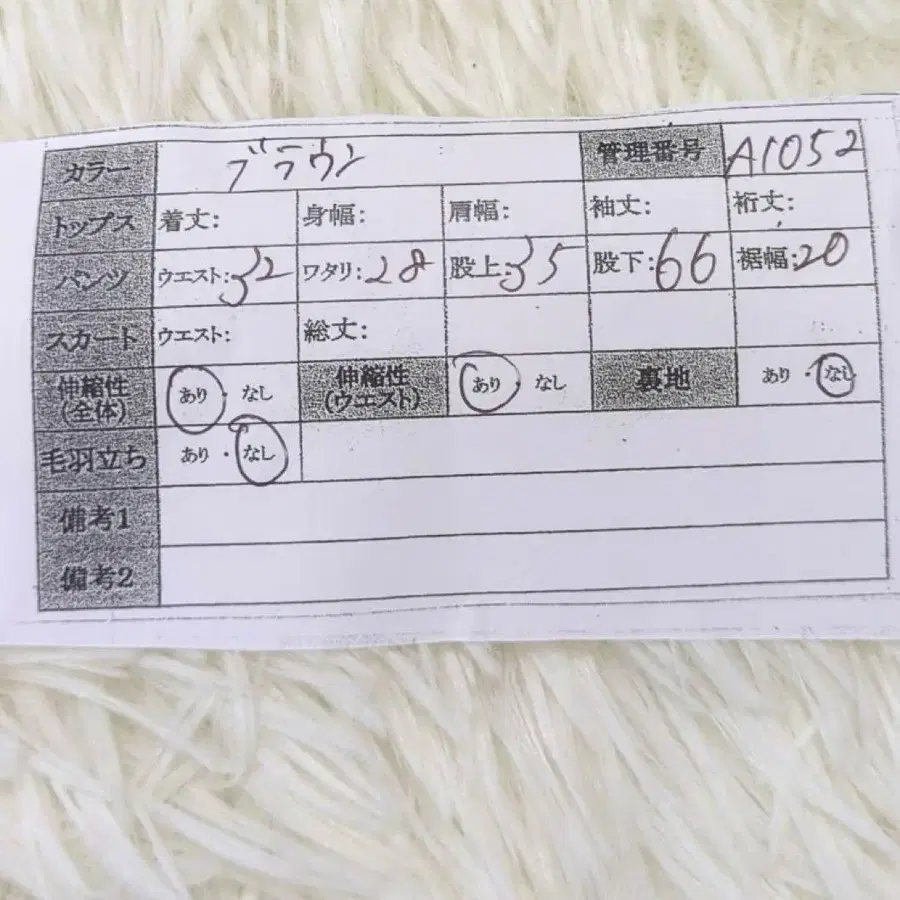 カラー ブラウン 管理番号 A1052
トップス 着丈: 身幅: 肩幅: 袖丈: 裄丈:
パンツ ウエスト:32 ワタリ:28 股上:35 股下:66 裾幅:20
スカート ウエスト: 総丈:
伸縮性(全体) あり・なし 伸縮性(ウエスト) あり・なし 裏地 あり・なし
毛羽立ち あり・なし
備考1
備考2